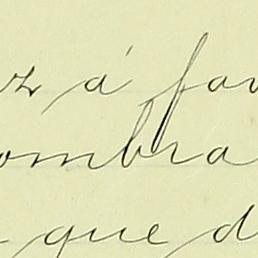 z á fav
ombra
que d